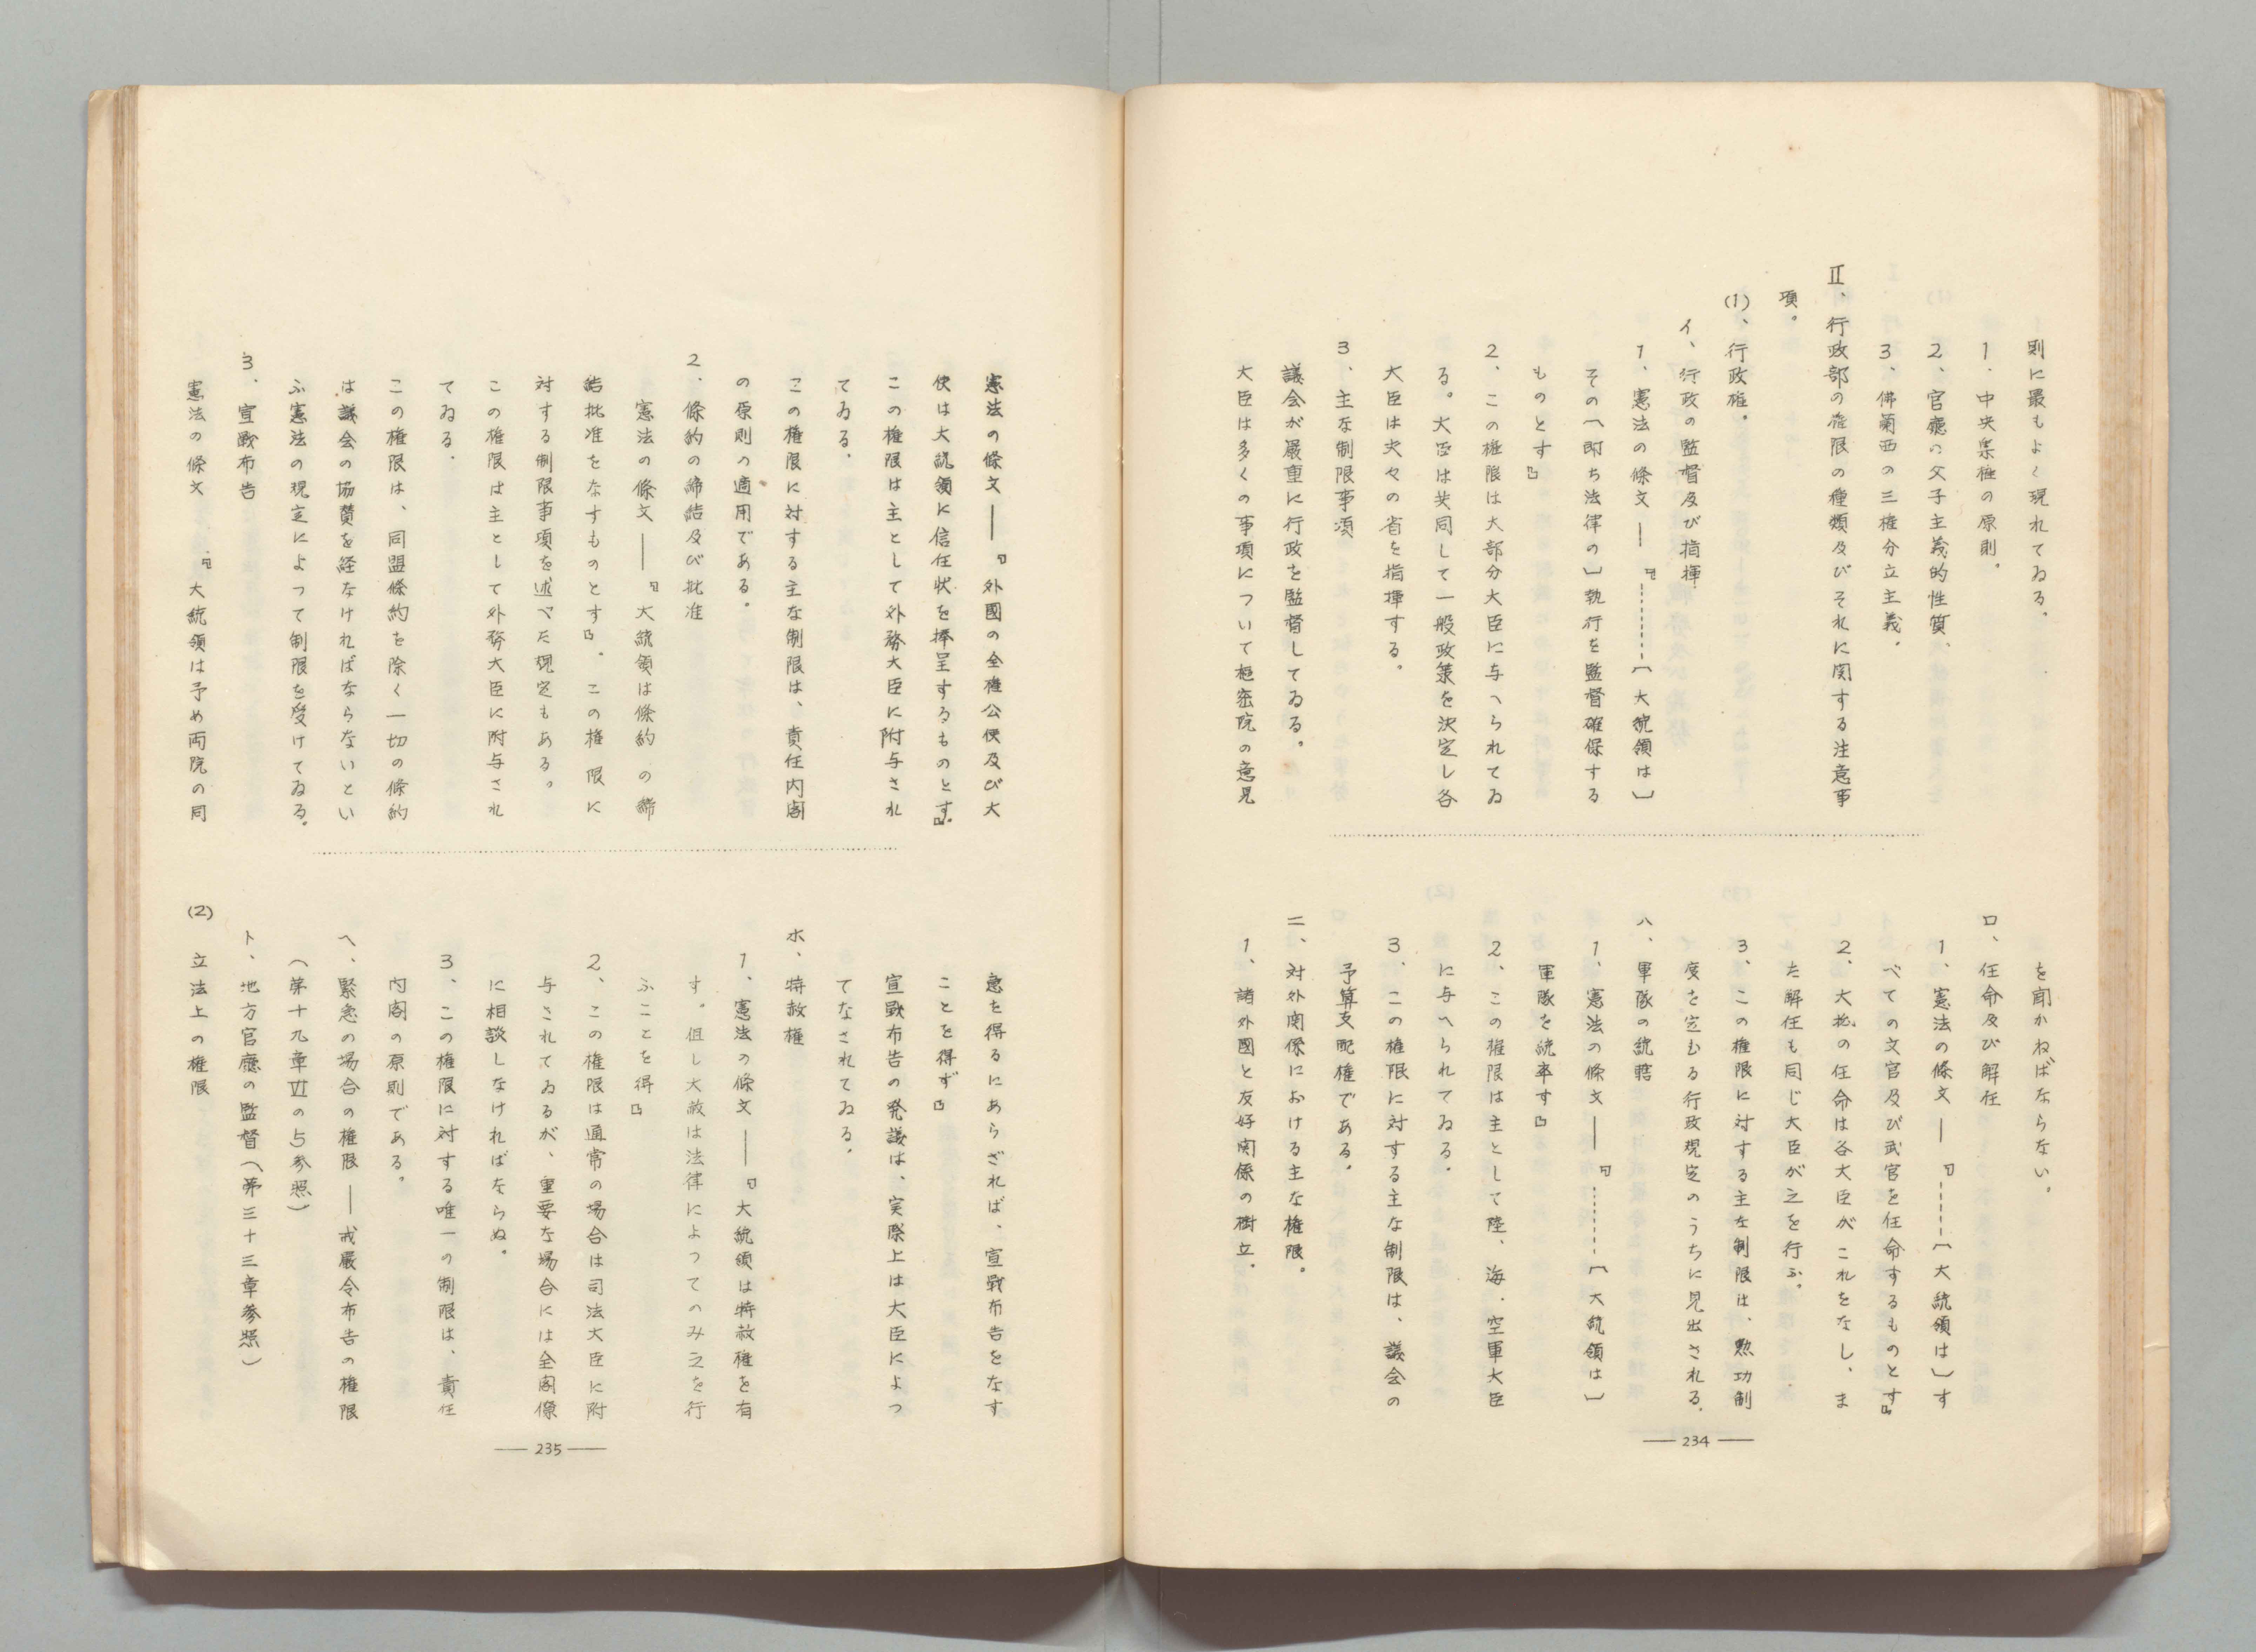 則に最もよく現れてゐる。
1. 中央集権の原則。
2、官廳の父子主義的性質、
3、佛蘭西の三権分立主義。
Ⅱ、行政部の権限の種類及びそれに関する注意事
項。
(1)、行政権。
イ、行政の監督及び指揮
1、憲法の條文―『………〔大統領は〕
その〔即ち法律の〕執行を監督確保する
ものとす』
2、この権限は大部分大臣に与へられてゐ
る。大臣は共同して一般政策を決定し各
大臣は夫々の省を指揮する。
3、主な制限事項
議会が厳重に行政を監督してゐる。
大臣は多くの事項について枢密院の意見
を聞かねばならない。
ロ、任命及び解任
1、憲法の條文―『……〔大統領は〕す
べての文官及び武官を任命するものとす』
2、大抵の任命は各大臣がこれをなし、ま
た解任も同じ大臣が之を行ふ。
3、この権限に対する主な制限は、勲功制
度を定むる行政規定のうちに見出される。
ハ、軍隊の統轄
1、憲法の條文――『………〔大統領は〕
軍隊を統率す』
2、この権限は主として陸、海、空軍大臣
に与へられてゐる。
3、この権限に対する主な制限は、議会の
予算支配権である。
ニ、対外関係における主な権限。
1、諸外國と友好関係の樹立。
― 234 ―
憲法の條文――『外國の全権公使及び大
使は大統領に信任状を捧呈するものとす』。
この権限は主として外務大臣に附与され
てゐる。
この権限に対する主な制限は、責任内閣
の原則の適用である。
2、條約の締結及び批准
憲法の條文――『大統領は條約の締
結批准をなすものとす』。この権限に
対する制限事項を述べた規定もある。
この権限は主として外務大臣に附与され
てゐる。
この権限は、同盟條約を除く一切の條約
は議会の協賛を経なければならないとい
ふ憲法の規定によって制限を受けてゐる。
3、宣戰布告
憲法の條文『大統領は予め両院の同
意を得るにあらざれば、宣戰布告をなす
ことを得ず』
宣戰布告の発議は、実際上は大臣によっ
てなされてゐる。
ホ、特赦権
1、憲法の條文――『大統領は特赦権を有
す。但し大赦は法律によってのみ之を行
ふことを得』
2、この権限は通常の場合は司法大臣に附
与されてゐるが、重要な場合には全閣僚
に相談しなければならぬ。
3、この権限に対する唯一の制限は、責任
内閣の原則である。
ヘ、緊急の場合の権限――戒厳令布告の権限
(第十九章Ⅵの5参照)
ト、地方官廳の監督(第三十三章参照)
(2) 立法上の権限
― 235 ―